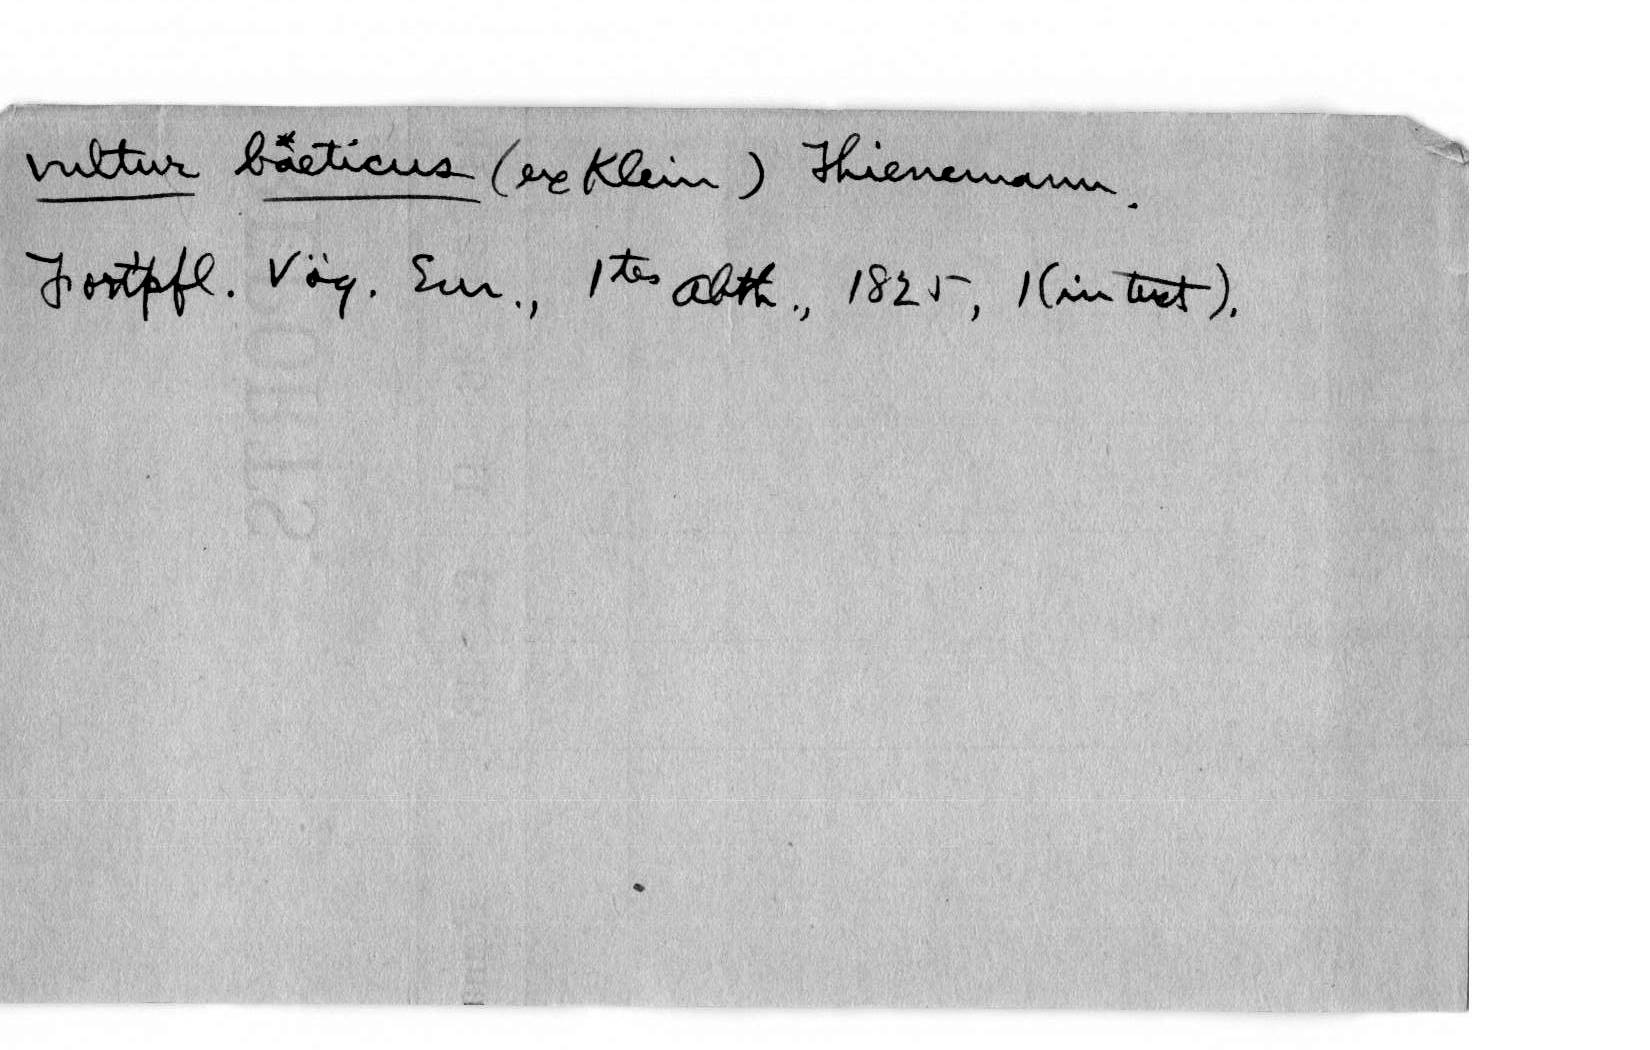 vultur bäeticus (ex Klein) Thienemann.
Fortpfl. Vög. Eur., 1tes Abth., 1825, 1(in text).